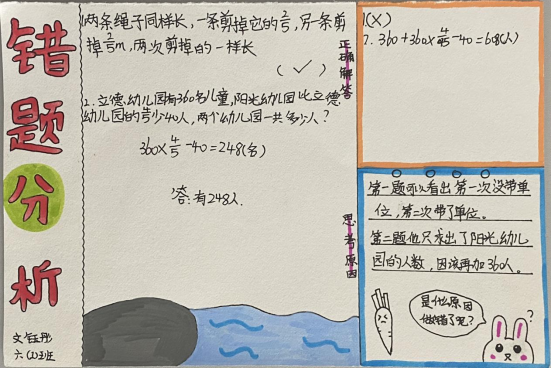 错题分析
文钰彤
六(2)班
1两条绳子同样长，一条剪掉它的2/5，另一条剪
掉2/5m，两次剪掉的一样长
(✓)
2.立德幼儿园有360名儿童，阳光幼儿园比立德
幼儿园的4/5少40人，两个幼儿园一共多少人？
360×4/5-40=248(名)
答:有248人.
正确解答
1(×)
2.360+360×4/5-40=608(人)
思考原因
第一题可以看出第一次没带单
位，第二次带了单位。
第二题他只求出了阳光幼儿
园的人数，因该再加360人。
是什么原因
做错了呢？
?